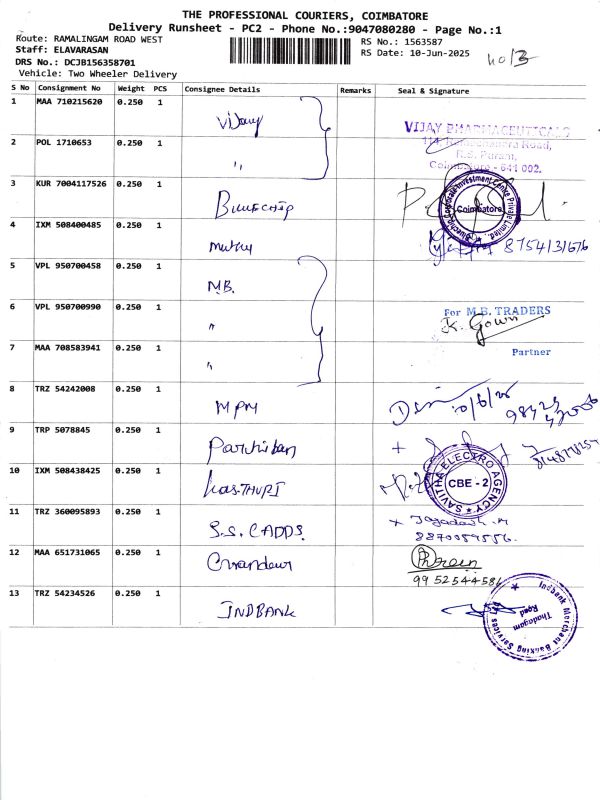 THE PROFESSIONAL COURIERS, COIMBATORE
Delivery Runsheet - PC2 - Phone No.:9047080280 - Page No.:1
Route: RAMALINGAM ROAD WEST
Staff: ELAVARASAN
DRS No.: DCJB156358701
Vehicle: Two Wheeler Delivery
RS No.: 1563587
RS Date: 10-Jun-2025
S No Consignment No Weight PCS Consignee Details Remarks Seal & Signature
1 MAA 710215620 0.250 1 Vijay
VIJAY PHARMACEUTICALS
2 POL 1710653 0.250 1 "
Road,
R.S. Puram,
Coimbatore - 641 002.
3 KUR 7004117526 0.250 1 Bluechip
Bluechip Corporate Investment Centre Private Limited
Coimbatore
4 IXM 508400485 0.250 1
8754131676
5 VPL 950700458 0.250 1 M.B.
6 VPL 950700990 0.250 1 "
For M.B. TRADERS
K. Gowri
7 MAA 708583941 0.250 1 "
Partner
8 TRZ 54242008 0.250 1 MPM
10/6/25
9 TRP 5078845 0.250 1 Parthiban
10 IXM 508438425 0.250 1 KASTHURI
SAVITHA ELECTRO AGENCY
CBE - 2
11 TRZ 360095893 0.250 1 S.S. CADDS.
8870059556.
12 MAA 651731065 0.250 1
9952544586
13 TRZ 54234526 0.250 1 INDBANK
Indbank Merchant Banking Services
Thadagam
Road